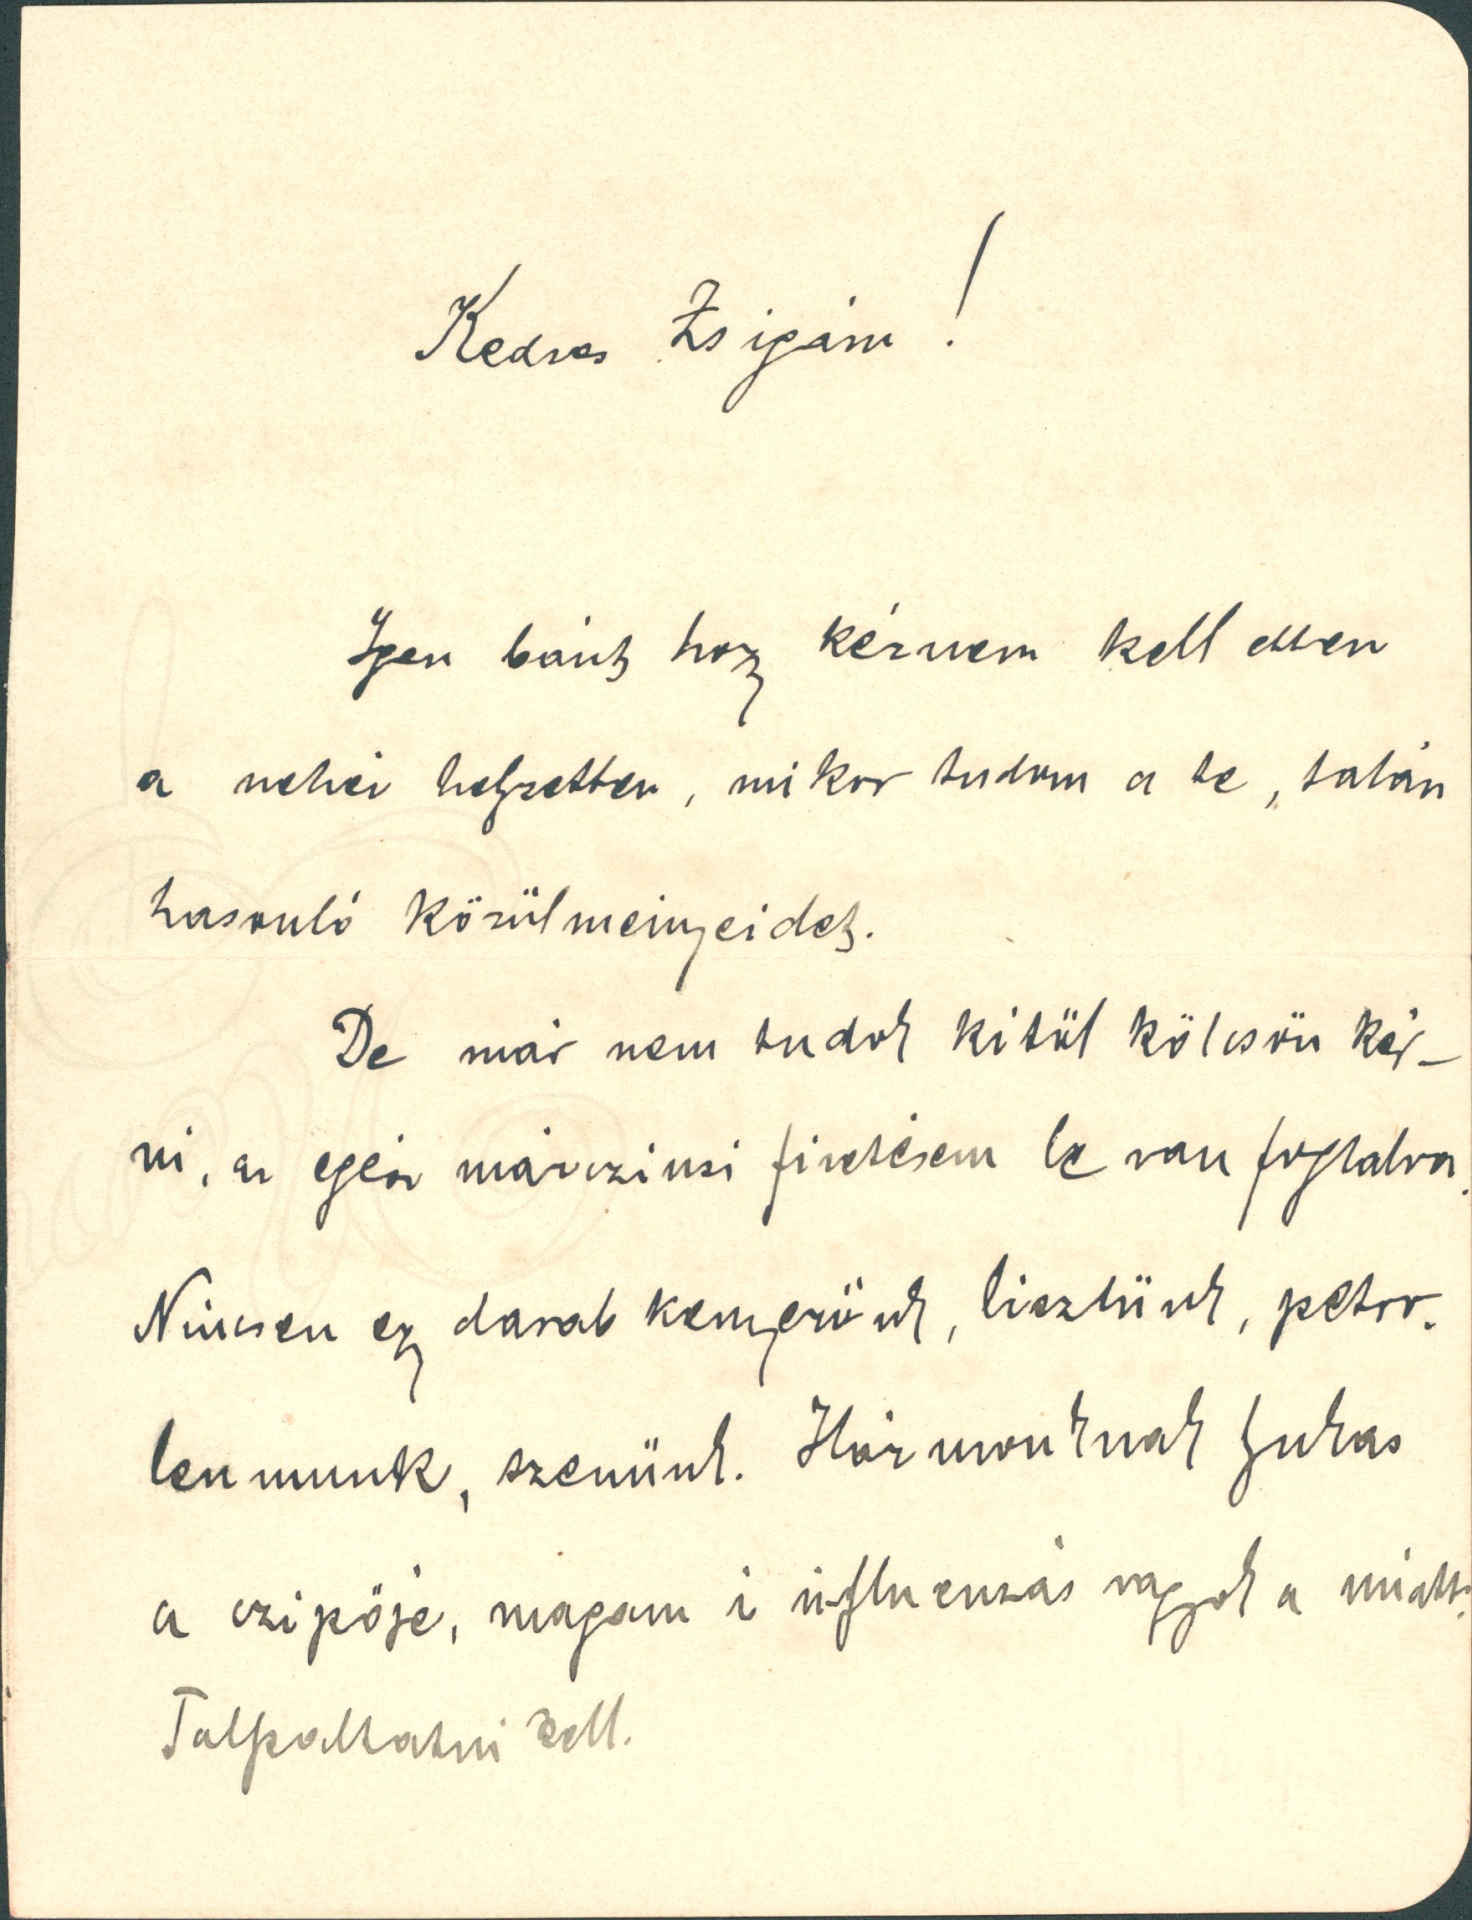 Kedves Zsigám!
Igen bánt, hogy kérnem kell ebben
a nehéz helyzetben, mikor tudom a te, talán
hasonló körülményeidet.
De már nem tudok kitül kölcsön kér-
ni, az egész márcziusi fizetésem le van foglalva.
Nincsen egy darab kenyerünk, lisztünk, petro-
leumunk, szenünk. Hármonknak lyukas
a czipője, magam i influenzás vagyok a miatt.
Talpaltatni kell.